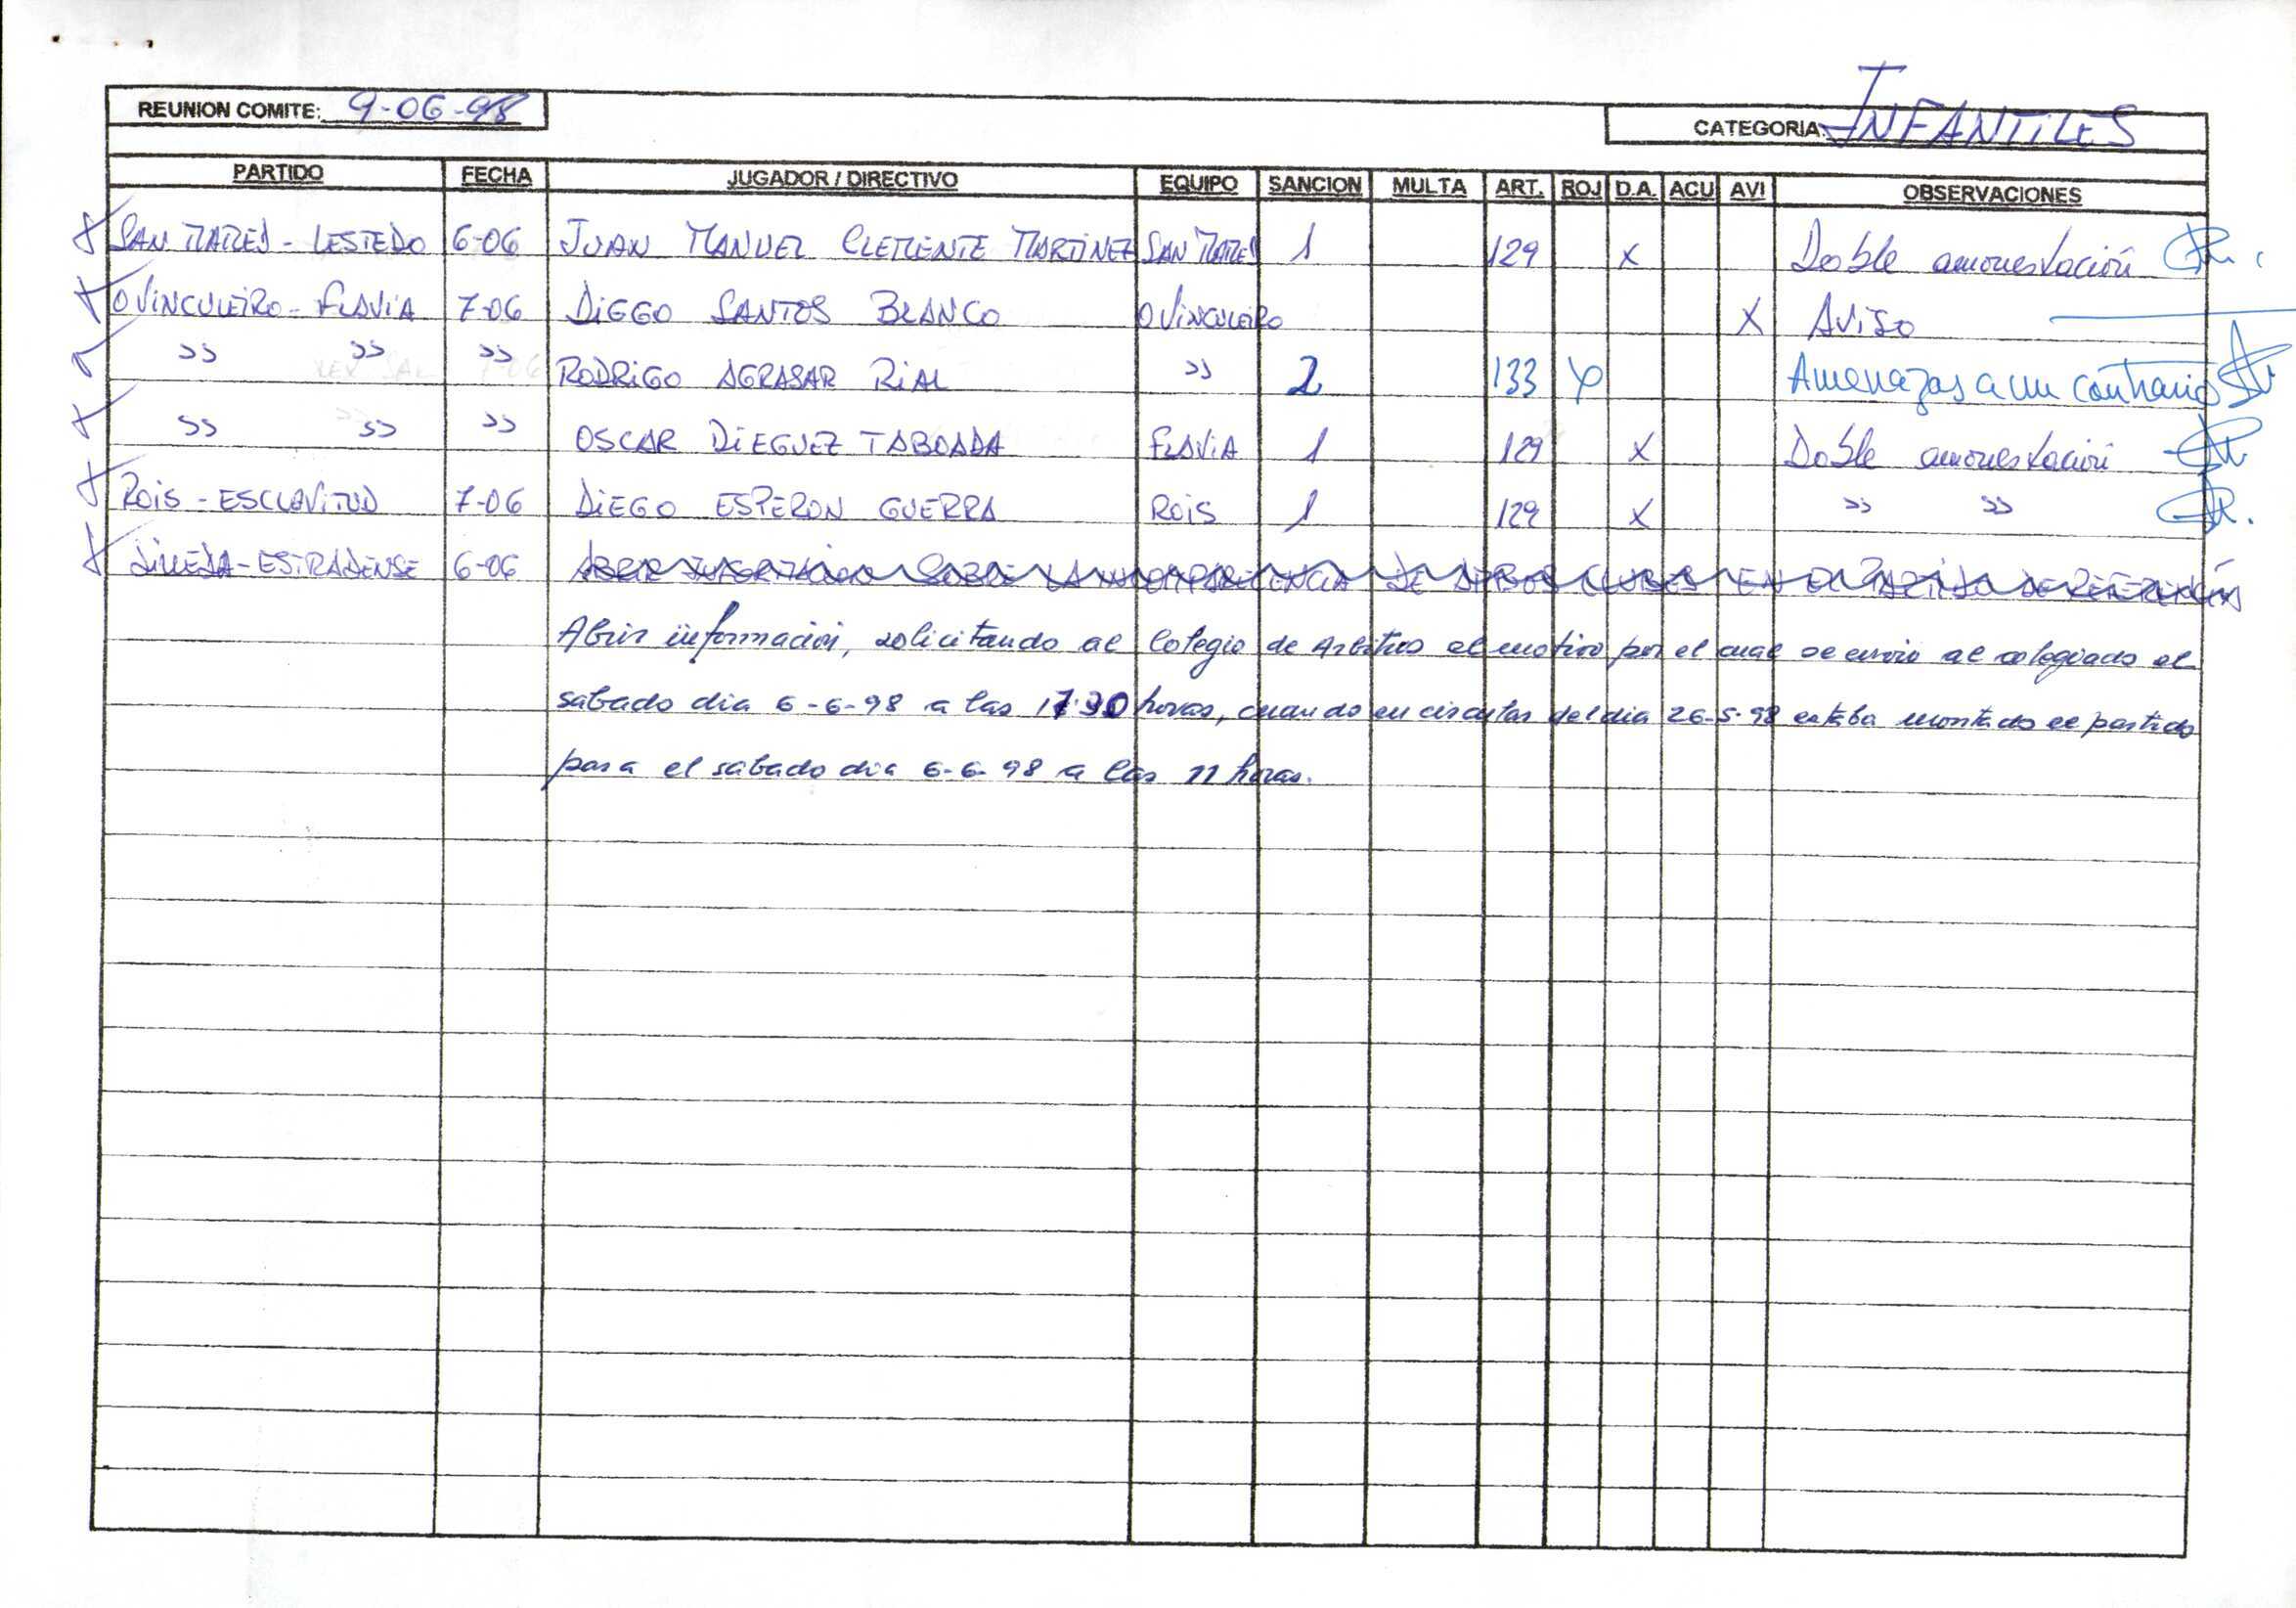 REUNION COMITE: 9-06-98
CATEGORIA: INFANTILES
PARTIDO FECHA JUGADOR / DIRECTIVO EQUIPO SANCION MULTA ART. ROJ D.A. ACU AVI OBSERVACIONES
SAN MAMED - LESTEDO 6-06 JUAN MANUEL CLEMENTE MARTINEZ SAN MAMED 1 129 X Doble amonestación
O VINCULEIRO - FLAVIA 7-06 DIEGO SANTOS BLANCO O VINCULEIRO X AVISO
>> >> >> RODRIGO AGRASAR RIAL >> 2 133 X Amenazas a un contrario
>> >> >> OSCAR DIEGUEZ TABOADA FLAVIA 1 129 X Doble amonestación
ROIS - ESCLAVITUD 7-06 DIEGO ESPERON GUERRA ROIS 1 129 X >> >>
SILLEDA - ESTRADENSE 6-06 ABRIR INFORMACION SOBRE LA INCOMPARECENCIA DE AMBOS CLUBES EN EL PARTIDO DE REFERENCIA
Abrir información, solicitando al Colegio de Arbitros el motivo por el cual se envio al colegiado el
sabado dia 6-6-98 a las 17'30 horas, cuando en circular del dia 26-5-98 estaba montado el partido
para el sabado dia 6-6-98 a las 11 horas.